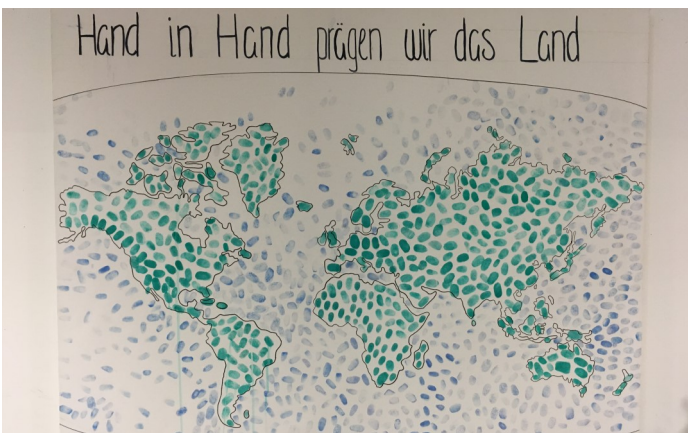 Hand in Hand prägen wir das Land